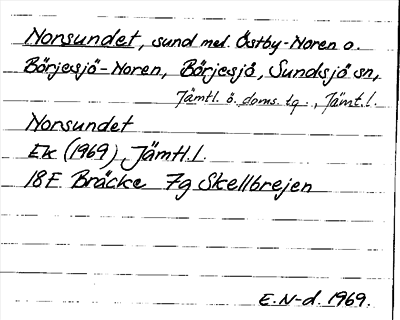 Norsundet, sund mel. Östby-Noren o.
Börjesjö-Noren, Börjesjö, Sundsjö sn,
Jämtl. ö. doms. tg., Jämt. l.
Norsundet
Ek (1969) Jämtl. l.
18F Bräcke 7g Skellbrejen
E. N-d. 1969.